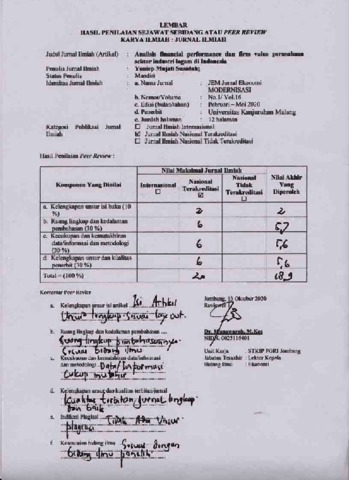 LEMBAR
HASIL PENILAIAN SEJAWAT SEBIDANG ATAU PEER REVIEW
KARYA ILMIAH : JURNAL ILMIAH
Judul Jurnal Ilmiah (Artikel) : Analisis financial performance dan firm value perusahaan
sektor industri logam di Indonesia
Penulis Jurnal Ilmiah :
Status Penulis : Mandiri
Identitas Jurnal Ilmiah : a. Nama Jurnal : JEM Jurnal Ekonomi
MODERNISASI
b. Nomor/Volume : No.1/ Vol.16
c. Edisi (bulan/tahun) : Februari – Mei 2020
d. Penerbit : Universitas Kanjuruhan Malang
e. Jumlah halaman : 12 halaman
Kategori Publikasi Jurnal Ilmiah : ☐ Jurnal Ilmiah Internasional
☑ Jurnal Ilmiah Nasional Terakreditasi
☐ Jurnal Ilmiah Nasional Tidak Terakreditasi
Hasil Penilaian Peer Review :
Nilai Maksimal Jurnal Ilmiah
Komponen Yang Dinilai
Internasional ☐
Nasional Terakreditasi ☑
Nasional Tidak Terakreditasi ☐
Nilai Akhir Yang Diperoleh
a. Kelengkapan unsur isi buku (10 %) 2 2
b. Ruang lingkup dan kedalaman pembahasan (30 %) 6 5,7
c. Kecukupan dan kemutakhiran data/informasi dan metodologi (30 %) 6 5,6
d. Kelengkapan unsur dan kualitas penerbit (30 %) 6 5,6
Total = (100 %) 20 18,9
Komentar Peer Review
Jombang, 13 Oktober 2020
Reviewer
a. Kelengkapan unsur isi artikel Isi Artikel
Unsur lingkup sesuai lay out.
b. Ruang lingkup dan kedalaman pembahasan
Ruang lingkup pembahasannya
Sesuai bidang ilmu
Dr. Munawaroh, M.Kes
NIDN. 0025116401
c. Kecukupan dan kemutakhiran data/informasi
dan metodologi Data/Informasi
Cukup mutahir
Unit Kerja : STKIP PGRI Jombang
Jabatan Terakhir : Lektor Kepala
Bidang Ilmu : Ekonomi
d. Kelengkapan unsur dan kualitas
Kualitas terbitan jurnal lengkap
dan baik
e. Indikasi Plagiat Tidak Ada Unsur
plagiasi
f. Kesesuaian bidang ilmu Sesuai dengan
bidang ilmu peneliti